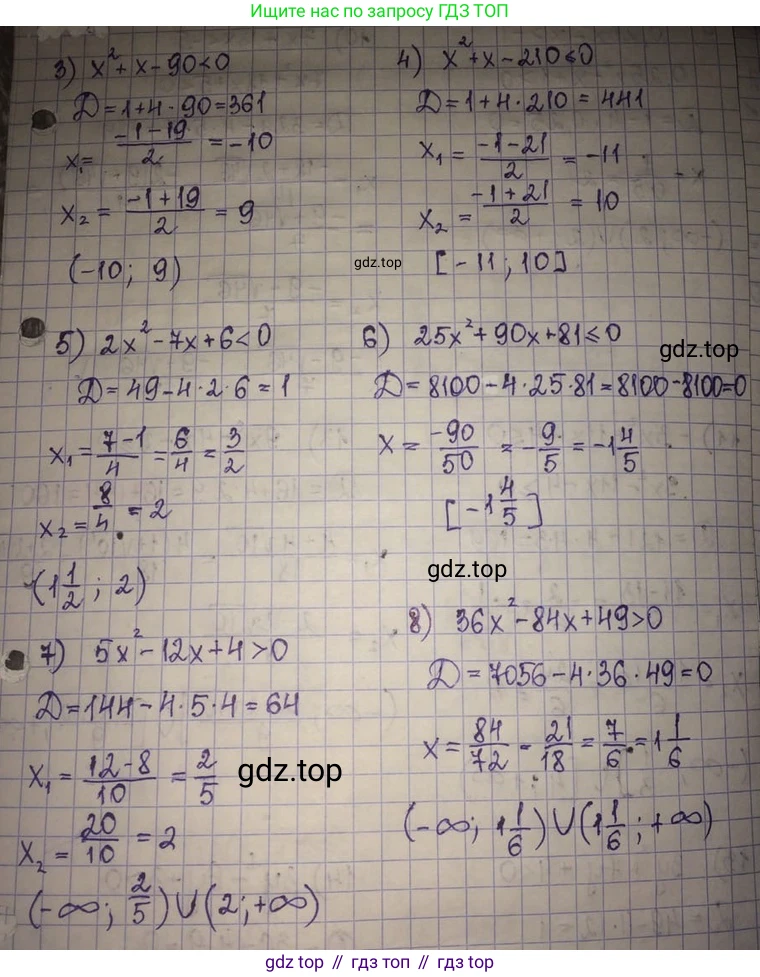 Ищите нас по запросу ГДЗ ТОП
3) x² + x - 90 < 0
D = 1 + 4 · 90 = 361
x₁ = (-1 - 19)/2 = -10
x₂ = (-1 + 19)/2 = 9
(-10; 9)
4) x² + x - 210 ≤ 0
D = 1 + 4 · 210 = 441
x₁ = (-1 - 21)/2 = -11
x₂ = (-1 + 21)/2 = 10
gdz.top
[-11; 10]
5) 2x² - 7x + 6 < 0
D = 49 - 4 · 2 · 6 = 1
x₁ = (7 - 1)/4 = 6/4 = 3/2
x₂ = 8/4 = 2
(1 1/2; 2)
6) 25x² + 90x + 81 ≤ 0
gdz.top
D = 8100 - 4 · 25 · 81 = 8100 - 8100 = 0
x = -90/50 = -9/5 = -1 4/5
[-1 4/5]
gdz.top
7) 5x² - 12x + 4 > 0
D = 144 - 4 · 5 · 4 = 64
x₁ = (12 - 8)/10 = 2/5
gdz.top
x₂ = 20/10 = 2
(-∞; 2/5) ∪ (2; +∞)
8) 36x² - 84x + 49 > 0
D = 7056 - 4 · 36 · 49 = 0
x = 84/72 = 21/18 = 7/6 = 1 1/6
(-∞; 1 1/6) ∪ (1 1/6; +∞)
gdz top // гдз топ // gdz.top